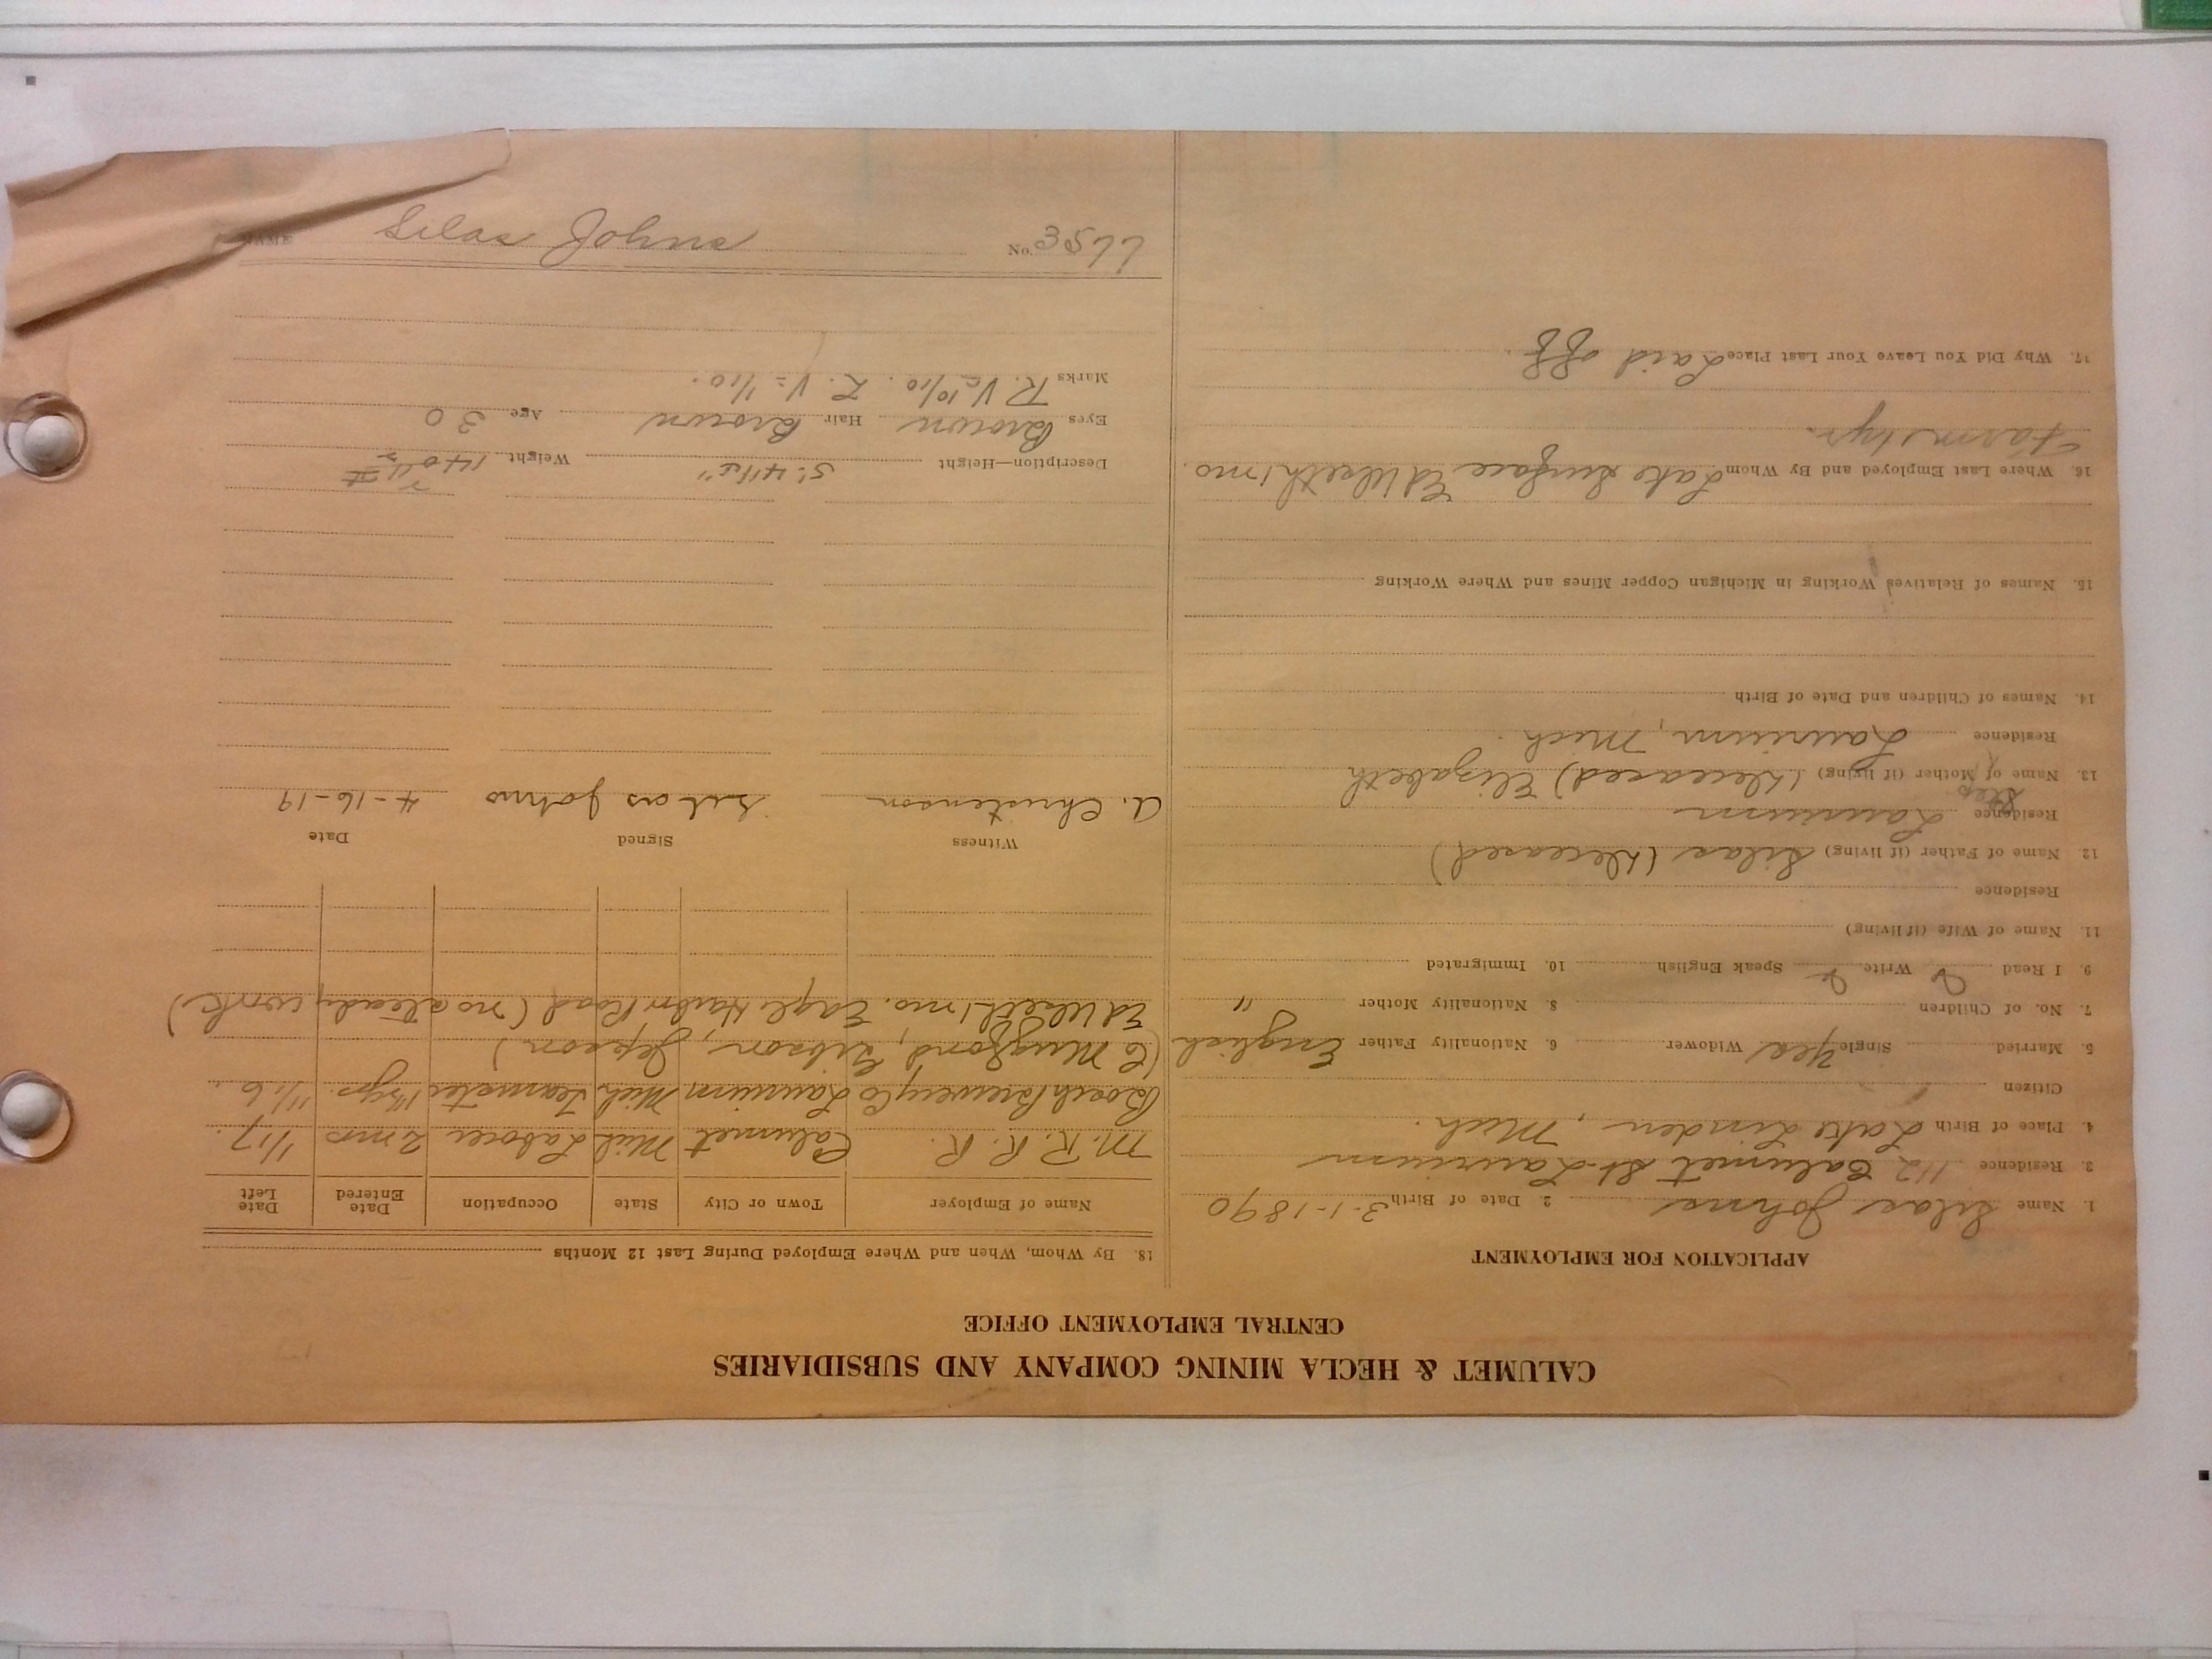 CALUMET & HECLA MINING COMPANY AND SUBSIDIARIES
CENTRAL EMPLOYMENT OFFICE
APPLICATION FOR EMPLOYMENT
1. Name Silas Johns 2. Date of Birth 3-1-1890
3. Residence 112 Calumet St. Laurium
4. Place of Birth Lake Linden, Mich.
Citizen
5. Married Single Yes Widower 6. Nationality Father English
7. No. of Children 8. Nationality Mother "
9. I Read Write Speak English 10. Immigrated
11. Name of Wife (if living)
Residence
12. Name of Father (if living) Silas (Deceased)
Residence Laurium
Step
13. Name of Mother (if living) (Deceased) Elizabeth
Residence Laurium, Mich.
14. Names of Children and Date of Birth
15. Names of Relatives Working in Michigan Copper Mines and Where Working
16. Where Last Employed and By Whom Lake Surface Ed 1 mo.
Farm 1 yr.
17. Why Did You Leave Your Last Place Laid off.
18. By Whom, When and Where Employed During Last 12 Months
Name of Employer Town or City State Occupation Date Entered Date Left
M. R. R. R. Calumet Mich Laborer 2 mos 1/17.
Bosch Brewery Co Laurium Mich Teamster yrs. 11/16.
Gibson, Jepson)
Ed 1 mo. Eagle Harbor Road (no steady work)
Witness Signed Date
A. Christenson Silas Johns 4-16-19
Description—Height 5' 4 Weight 140
Eyes Brown Hair Brown Age 30
Marks R. V = 10/10. L. V = 1/10.
NAME Silas Johns NO. 3577